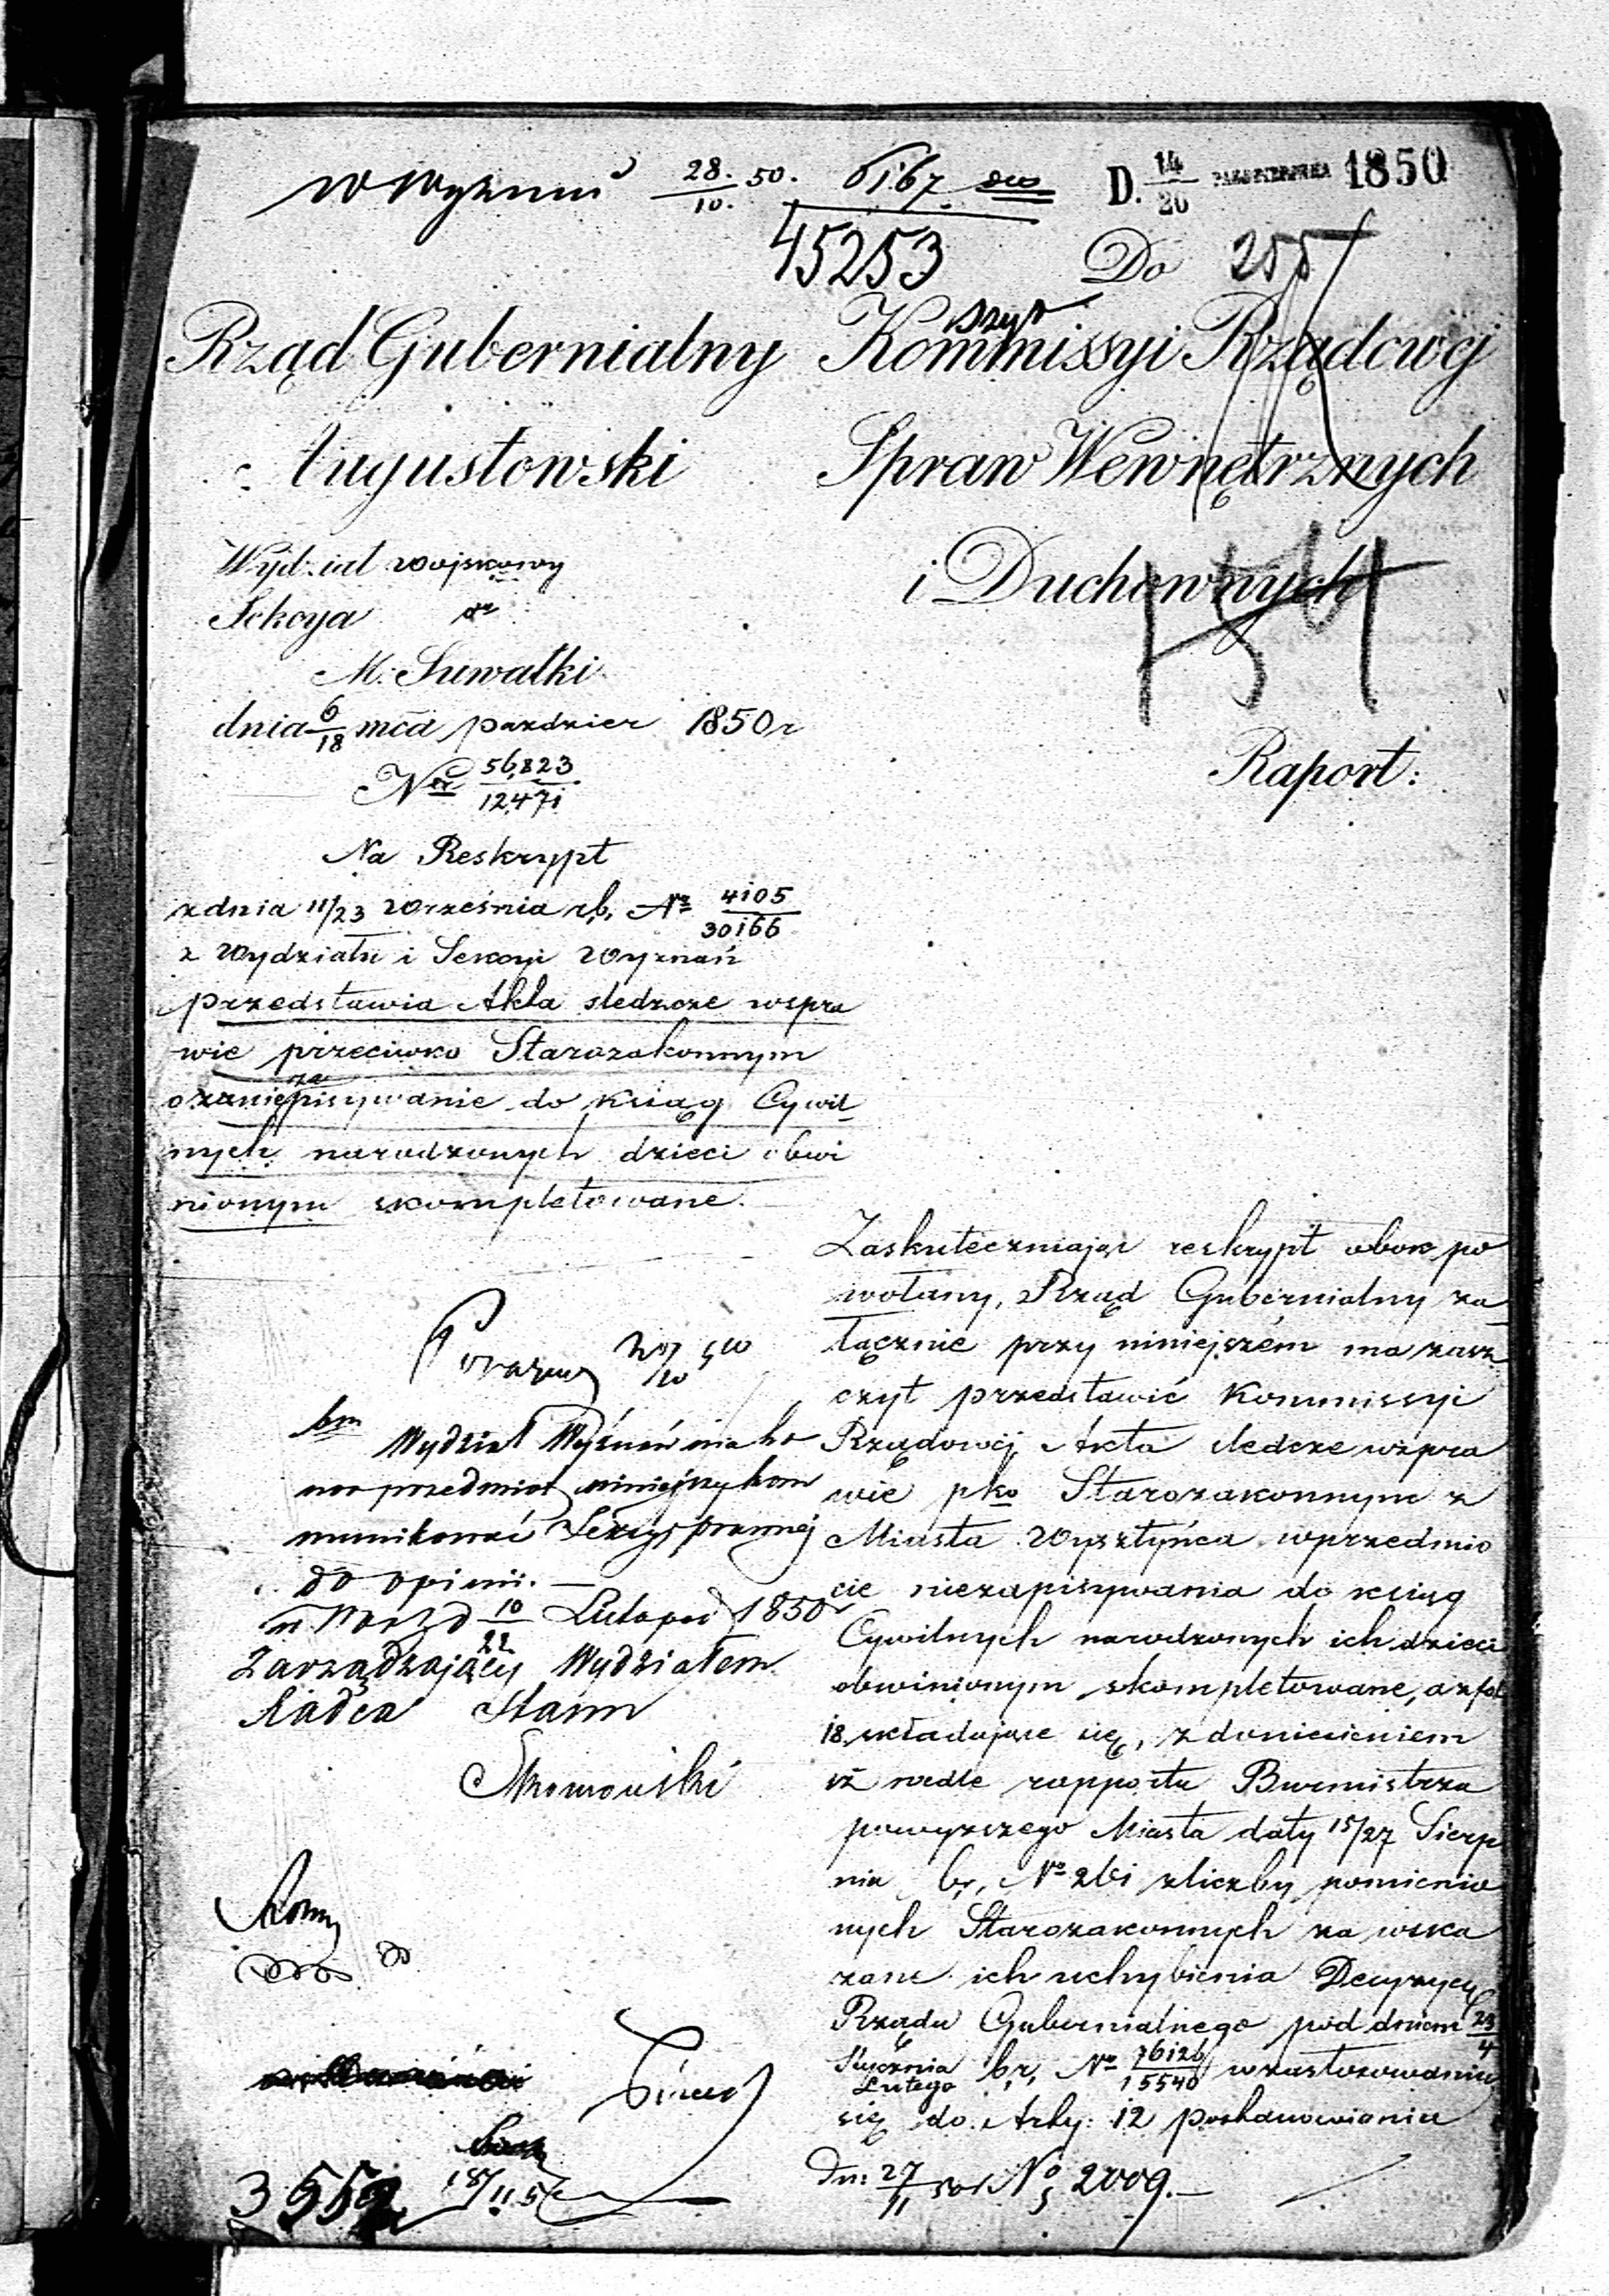 28./10. 50. 6167
D. 14/26 PAŹDZIERNIKA 1850
45253
Do 255
Rząd Gubernialny
Augustowski
Wydział wojskowy
Sekcya
M. Suwałki
dnia 6/18 mca paździer 1850 r
Nr 56,823/12471
Na Reskrypt
z dnia 11/23 Września r.b. Nr 4105/30166
z Wydziału i Sekcyi Wyznań
przedstawia Akta śledcze wspra
wie przeciwko Starozakonnym
o niezapisywanie do ksiąg Cywil
nych narodzonych dzieci obwi
nionym skompletowane.
Kommissyi Rządowéj
Spraw Wewnętrznych
i Duchownych
Raport:
Zaskuteczniając reskrypt obok po
wołany, Rząd Gubernialny za
łącznie przy niniejszém ma zasz
czyt przedstawić Kommissyi
Rządowéj Akta śledcze wspra
wie pko Starozakonnym z
Miasta Wysztyńca wprzedmio
cie niezapisywania do ksiąg
Cywilnych narodzonych ich dzieci
obwinionym skompletowane, a z fol
18 składające się, z doniesieniem
iż wedle rapportu Burmistrza
powyższego Miasta daty 15/27 Sierp
nia b.r. No 261 z liczby pomienio
nych Starozakonnych za wska
zane ich uchybienia Decyzyą
Rządu Gubernialnego pod dniem 23/4
Stycznia/Lutego b.r. Nr 76126/15540 w zastosowaniu
się do Arty: 12 postanowienia
Wydział Wyznań ma ho
nor przedmiot niniejszy kom
munikować Sekcyi prawnéj
do opinii.
d 10/22 Listopad 1850
Zarządzający Wydziałem
Radca Stanu
3552
Dn: 27/11 50 No 2009.